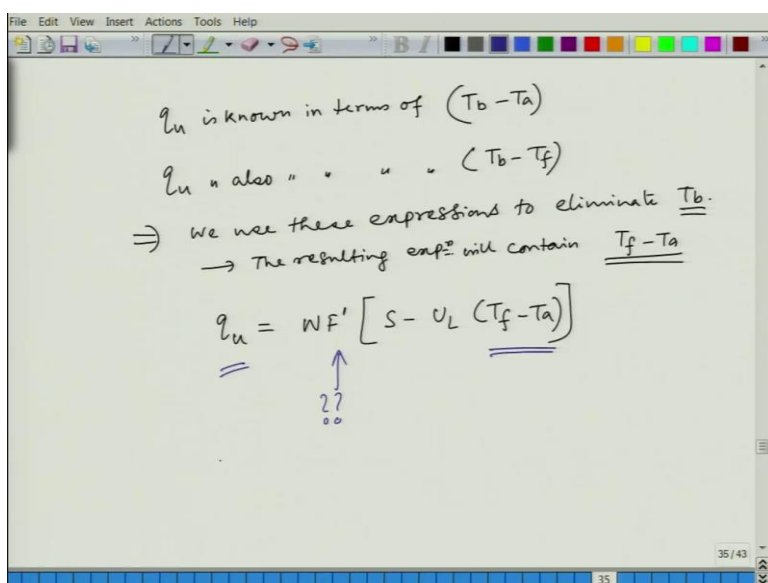 File Edit View Insert Actions Tools Help
B I
q_u is known in terms of (T_b - T_a)
q_u " also " " " " (T_b - T_f)
⇒ we use these expressions to eliminate T_b.
→ The resulting exp^n will contain T_f - T_a
q_u = WF' [S - U_L (T_f - T_a)]
??
35/43
35